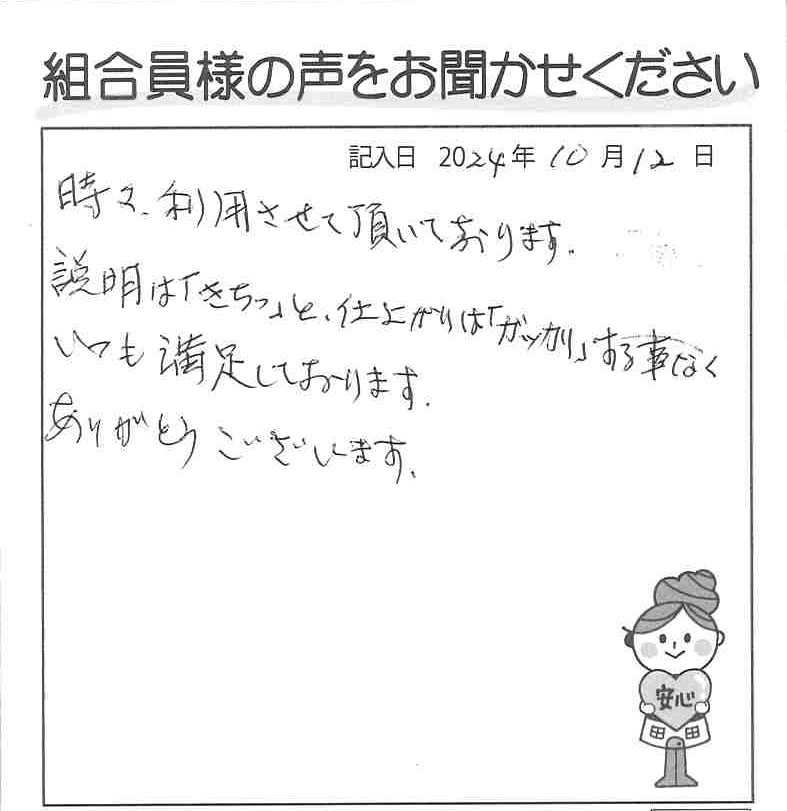 組合員様の声をお聞かせください
記入日 2024年 10月12日
時々、利用させて頂いております。
説明は「きちっ」と、仕上がりは「ガッカリ」する事なく
いつも満足しております。
ありがとうございます。
安心